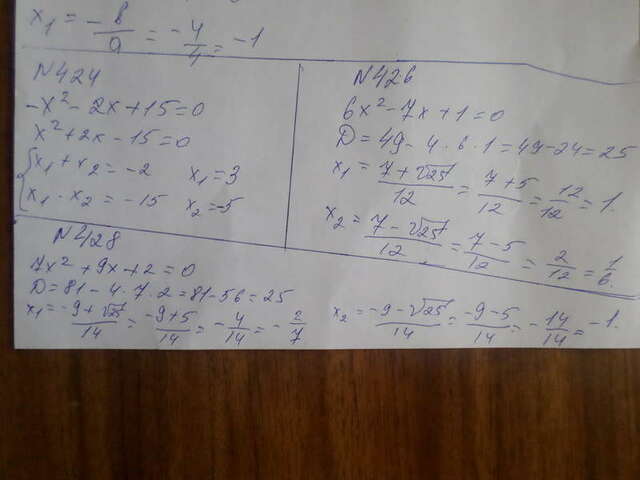 x₁ = -8/a = -4/4 = -1
N424
-x² - 2x + 15 = 0
x² + 2x - 15 = 0
x₁ + x₂ = -2 x₁ = 3
x₁ · x₂ = -15 x₂ = -5
N426
6x² - 7x + 1 = 0
D = 49 - 4 · 6 · 1 = 49 - 24 = 25
x₁ = (7 + √25)/12 = (7 + 5)/12 = 12/12 = 1.
x₂ = (7 - √25)/12 = (7 - 5)/12 = 2/12 = 1/6.
N428
7x² + 9x + 2 = 0
D = 81 - 4 · 7 · 2 = 81 - 56 = 25
x₁ = (-9 + √25)/14 = (-9 + 5)/14 = -4/14 = -2/7
x₂ = (-9 - √25)/14 = (-9 - 5)/14 = -14/14 = -1.